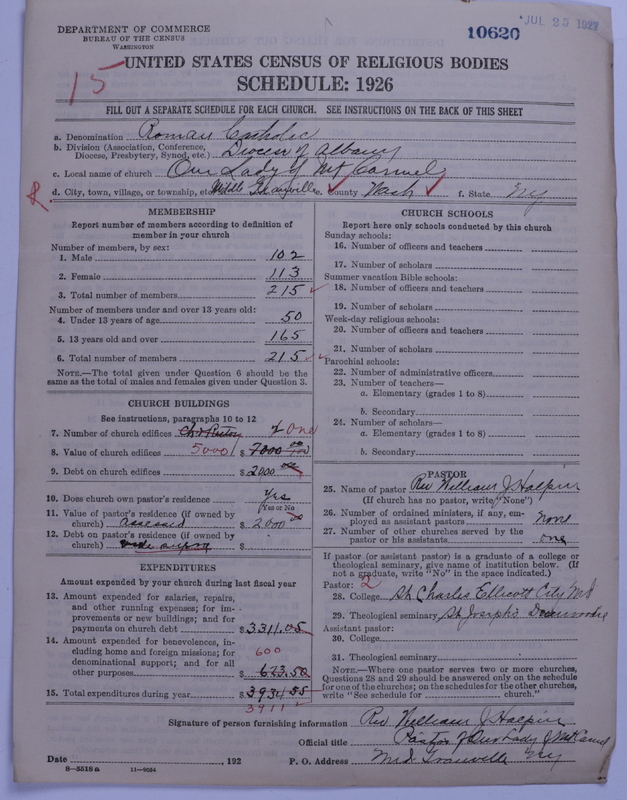 DEPARTMENT OF COMMERCE
BUREAU OF THE CENSUS
WASHINGTON
10620
JUL 25 1927
15
UNITED STATES CENSUS OF RELIGIOUS BODIES
SCHEDULE: 1926
FILL OUT A SEPARATE SCHEDULE FOR EACH CHURCH. SEE INSTRUCTIONS ON THE BACK OF THIS SHEET
a. Denomination Roman Catholic
b. Division (Association, Conference, Diocese, Presbytery, Synod, etc.) Diocese of Albany
c. Local name of church Our Lady of Mt Carmel
d. City, town, village, or township, etc. Middle Granville e. County Wash f. State NY
MEMBERSHIP
Report number of members according to definition of
member in your church
Number of members, by sex:
1. Male 102
2. Female 113
3. Total number of members 215
Number of members under and over 13 years old:
4. Under 13 years of age 50
5. 13 years old and over 165
6. Total number of members 215
NOTE.—The total given under Question 6 should be
the same as the total of males and females given under Question 3.
CHURCH BUILDINGS
See instructions, paragraphs 10 to 12
7. Number of church edifices Ch & Rectory 2 One
8. Value of church edifices 5000 $ 7000 00/100
9. Debt on church edifices $ 2000 00
10. Does church own pastor's residence Yes
(Yes or No)
11. Value of pastor's residence (if owned by
church) assessed $ 2000 00
12. Debt on pastor's residence (if owned by
church) $
EXPENDITURES
Amount expended by your church during last fiscal year
13. Amount expended for salaries, repairs,
and other running expenses; for im-
provements or new buildings; and for
payments on church debt $ 3311.05
14. Amount expended for benevolences, in-
cluding home and foreign missions; for
denominational support; and for all
other purposes 600 623.50
15. Total expenditures during year $ 3934.55
3911
CHURCH SCHOOLS
Report here only schools conducted by this church
Sunday schools:
16. Number of officers and teachers
17. Number of scholars
Summer vacation Bible schools:
18. Number of officers and teachers
19. Number of scholars
Week-day religious schools:
20. Number of officers and teachers
21. Number of scholars
Parochial schools:
22. Number of administrative officers
23. Number of teachers—
a. Elementary (grades 1 to 8)
b. Secondary
24. Number of scholars—
a. Elementary (grades 1 to 8)
b. Secondary
PASTOR
25. Name of pastor Rev William J Halpin
(If church has no pastor, write "None")
26. Number of ordained ministers, if any, em-
ployed as assistant pastors none
27. Number of other churches served by the
pastor or his assistants one
If pastor (or assistant pastor) is a graduate of a college or
theological seminary, give name of institution below. (If
not a graduate, write "No" in the space indicated.)
Pastor: 2
28. College St Charles Ellicott City Md
29. Theological seminary St Josephs Dunwoodie
Assistant pastor:
30. College
31. Theological seminary
NOTE.—Where one pastor serves two or more churches,
Questions 28 and 29 should be answered only on the schedule
for one of the churches; on the schedules for the other churches,
write "See schedule for church."
Signature of person furnishing information Rev William J Halpin
Official title Pastor of Our Lady of Mt Carmel
Date , 192 P. O. Address Mid Granville NY
8-5518 a 11-9034